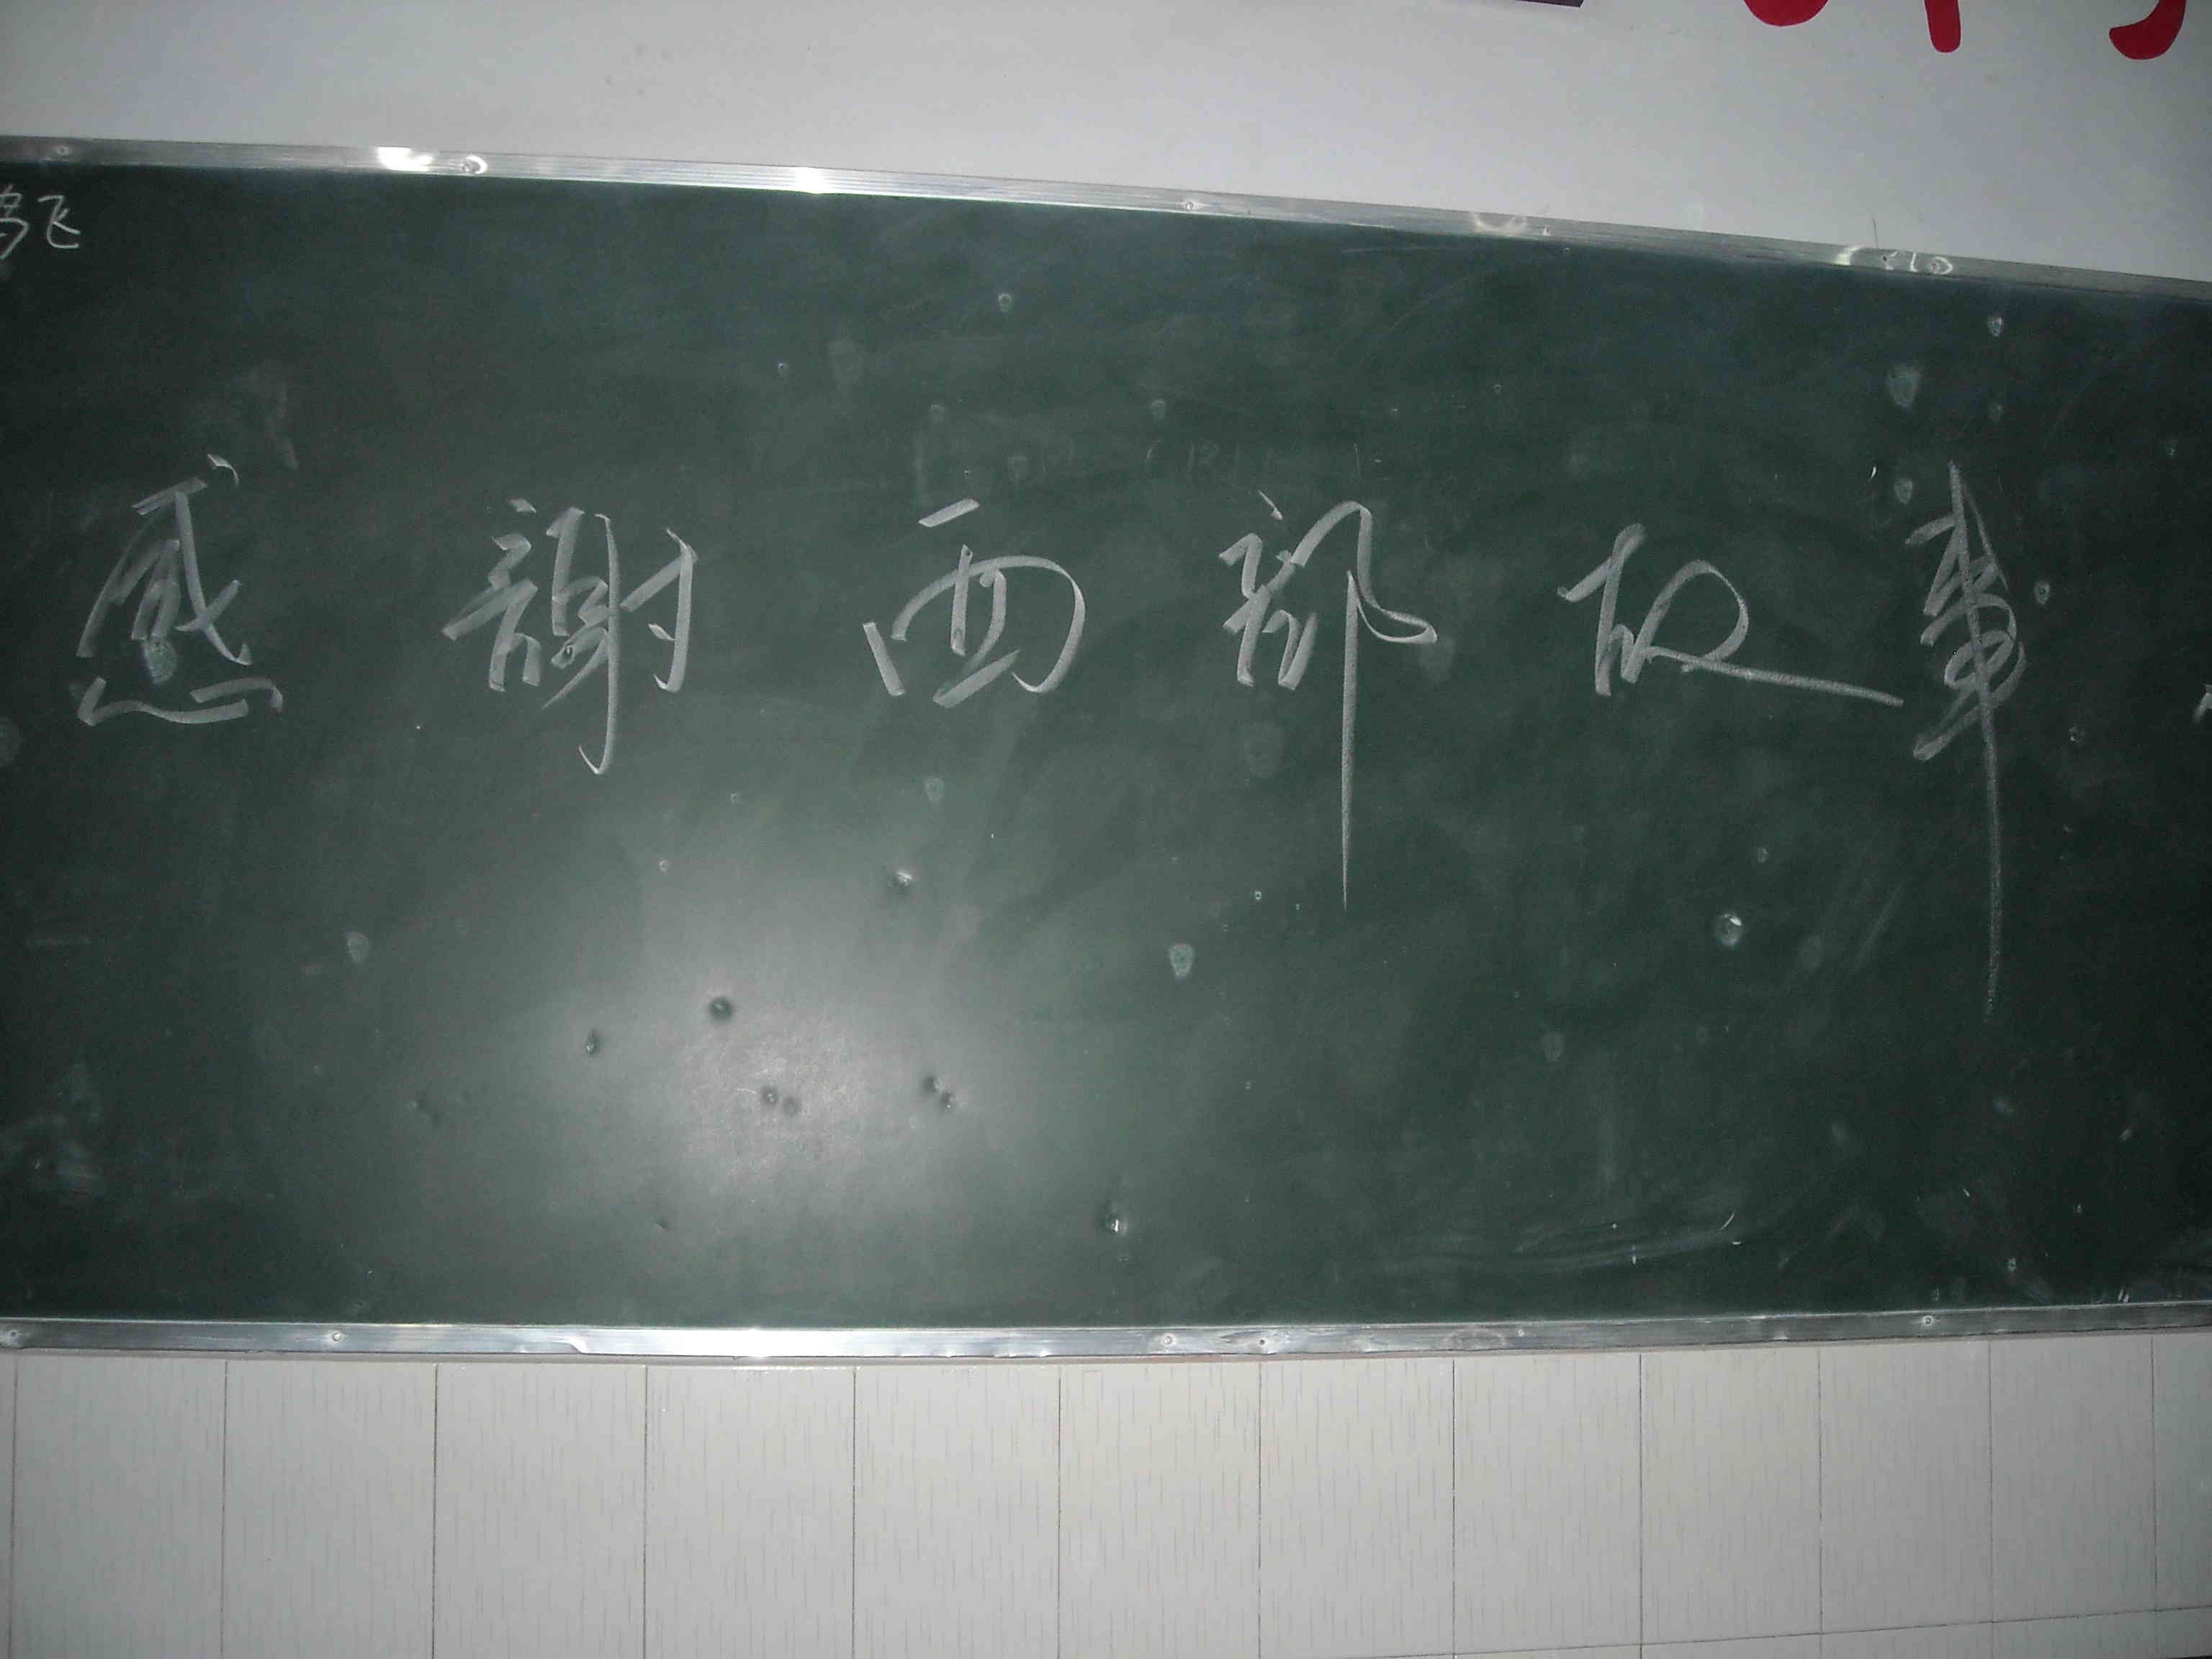 飞
感謝西部故事